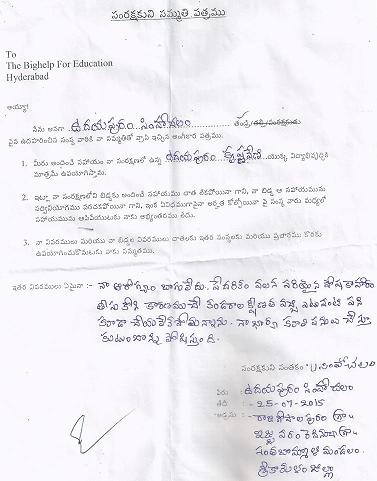 సంరక్షకుని సమ్మతి పత్రము
To
The Bighelp For Education
Hyderabad
అయ్యా!
నేను అనగా ..ఉదయపురం.. సింహాచలం............ తండ్రి/తల్లి/సంరక్షకుడు
పైన ఉదహరించిన సంస్థ వారికి నా సమ్మతితో వ్రాసి ఇచ్చిన అంగీకార పత్రము:
1. మీరు అందించే సహాయం నా సంరక్షణలో ఉన్న ఉదయపురం.. కృష్ణవేణి ..యొక్క విద్యాభివృద్ధికి
మాత్రమే ఉపయోగిస్తాను.
2. ఇట్లూ నా సంరక్షణలోని బిడ్డకు అందించే సహాయము దాత లేకపోయినా గాని, నా బిడ్డ ఆ సహాయమును
సద్వినియోగము పరచకపోయినా గాని, ఇంక ఏవిధముగానైనా అర్హత కోల్పోయినా పై సంస్థ వారు మధ్యలో
సహాయమును ఆపివేయుటకు నాకు అభ్యంతరము లేదు.
3. నా వివరములు మరియు నా బిడ్డల వివరములు దాతలకు ఇతర సంస్థలకు మరియు ప్రచారము కొరకు
ఉపయోగించుకొనుటకు నాకు సమ్మతము.
ఇతర వివరములు ఏమైనా :- నా ఆరోగ్యం బాగులేదు. పేదరికం వలన సరియైన పోషకాహారం
కారణముచే కండరాల క్షీణత వచ్చి ఎటువంటి పని
కూడా చేయలేకపోతున్నాను. నా భార్య కూలి పనులు చేస్తూ
కుటుంబాన్ని పోషిస్తుంది.
సంరక్షకుని సంతకం: U సింహాచలం
పేరు : ఉదయపురం సింహాచలం
తేది : - 25-07-2015
అడ్రసు : - రాజగోపాలపురం గ్రా॥
మండలం.
శ్రీకాకుళం జిల్లా